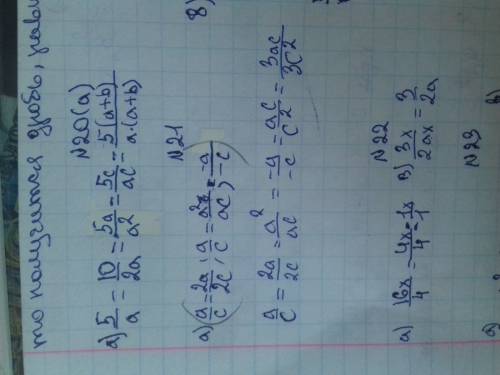 то получится дробь, равн
№20(а)
а) 5/a = 10/2a = 5a/a² = 5c/ac = 5(a+b)/a·(a+b)
№21 8)
а) (a/c = 2a/2c; a/c = =-a/-c)
a/c = 2a/2c = a²/ac = -a/-c = ac/c² = 3ac/3c²
№22
а) 16x/4 = 4x/4 = 1x/1 в) 3x/2ax = 3/2a
№23
а) в)